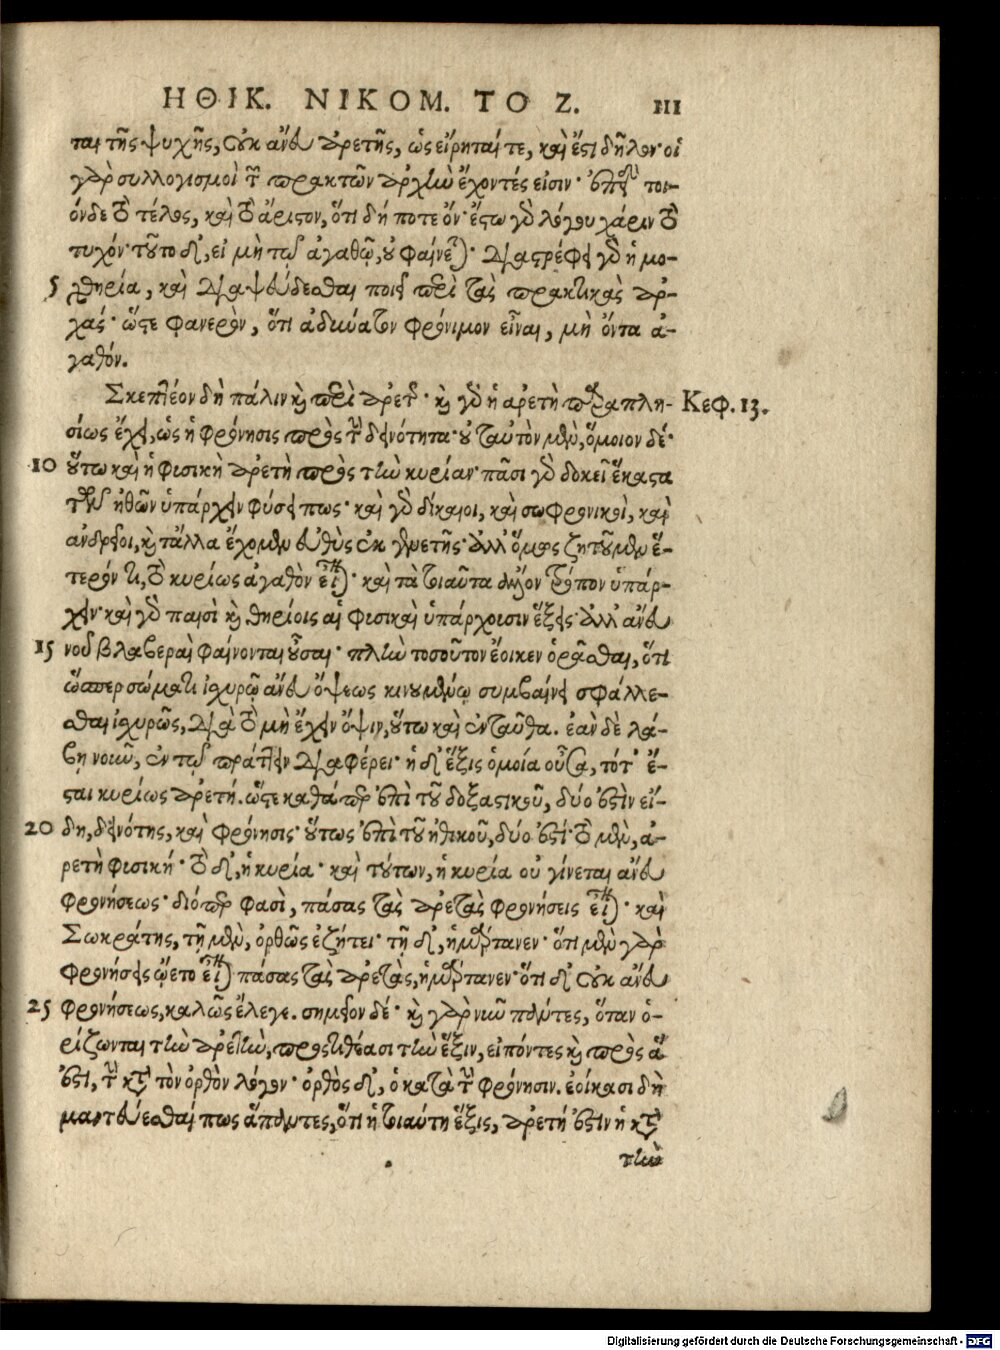 ΗΘΙΚ. ΝΙΚΟΜ. ΤΟ Ζ. 111
ται τῆς ψυχῆς, οὐκ ἄνευ ἀρετῆς, ὡς εἴρηταί τε, καὶ ἔστι δῆλον· οἱ
γὰρ συλλογισμοὶ τῶν πρακτῶν ἀρχὴν ἔχοντές εἰσιν· ἐπειδὴ τοι-
όνδε τὸ τέλος, καὶ τὸ ἄριστον, ὅτι δή ποτε ὄν· ἔστω γὰρ λόγου χάριν τὸ
τυχόν· τοῦτο δ', εἰ μὴ τῷ ἀγαθῷ, οὐ φαίνεται· διαστρέφει γὰρ ἡ μο-
5 χθηρία, καὶ διαψεύδεσθαι ποιεῖ περὶ τὰς πρακτικὰς ἀρ-
χάς· ὥστε φανερὸν, ὅτι ἀδύνατον φρόνιμον εἶναι, μὴ ὄντα ἀ-
γαθόν.
Σκεπτέον δὴ πάλιν καὶ περὶ ἀρετῆς· καὶ γὰρ ἡ ἀρετὴ παραπλη- Κεφ. 13.
σίως ἔχει, ὡς ἡ φρόνησις πρὸς τὴν δεινότητα· οὐ ταὐτὸν μὲν, ὅμοιον δέ·
10 οὕτω καὶ ἡ φυσικὴ ἀρετὴ πρὸς τὴν κυρίαν· πᾶσι γὰρ δοκεῖ ἕκαστα
τῶν ἠθῶν ὑπάρχειν φύσει πως· καὶ γὰρ δίκαιοι, καὶ σωφρονικοὶ, καὶ
ἀνδρεῖοι, καὶ τἄλλα ἔχομεν εὐθὺς ἐκ γενετῆς· ἀλλ' ὅμως ζητοῦμεν ἕ-
τερόν τι, τὸ κυρίως ἀγαθὸν εἶναι· καὶ τὰ τοιαῦτα ἄλλον τρόπον ὑπάρ-
χειν· καὶ γὰρ παισὶ καὶ θηρίοις αἱ φυσικαὶ ὑπάρχουσιν ἕξεις· ἀλλ' ἄνευ
15 νοῦ βλαβεραὶ φαίνονται οὖσαι· πλὴν τοσοῦτον ἔοικεν ὁρᾶσθαι, ὅτι
ὥσπερ σώματι ἰσχυρῷ ἄνευ ὄψεως κινουμένῳ συμβαίνει σφάλλε-
σθαι ἰσχυρῶς, διὰ τὸ μὴ ἔχειν ὄψιν, οὕτω καὶ ἐνταῦθα. ἐὰν δὲ λά-
βῃ νοῦν, ἐν τῷ πράττειν διαφέρει· ἡ δ' ἕξις ὁμοία οὖσα, τότ' ἔ-
σται κυρίως ἀρετή. ὥστε καθάπερ ἐπὶ τοῦ δοξαστικοῦ, δύο ἐστὶν εἴ-
20 δη, δεινότης, καὶ φρόνησις· οὕτως ἐπὶ τοῦ ἠθικοῦ, δύο ἐστί· τὸ μὲν, ἀ-
ρετὴ φυσική· τὸ δ', ἡ κυρία· καὶ τούτων, ἡ κυρία οὐ γίνεται ἄνευ
φρονήσεως· διόπερ φασὶ, πάσας τὰς ἀρετὰς φρονήσεις εἶναι· καὶ
Σωκράτης, τῇ μὲν, ὀρθῶς ἐζήτει· τῇ δ', ἡμάρτανεν· ὅτι μὲν γὰρ
φρονήσεις ᾤετο εἶναι πάσας τὰς ἀρετὰς, ἡμάρτανεν· ὅτι δ' οὐκ ἄνευ
25 φρονήσεως, καλῶς ἔλεγε. σημεῖον δέ· καὶ γὰρ νῦν πάντες, ὅταν ὁ-
ρίζωνται τὴν ἀρετὴν, προστιθέασι τὴν ἕξιν, εἰπόντες καὶ πρὸς ἅ
ἐστι, τὴν κατὰ τὸν ὀρθὸν λόγον· ὀρθὸς δ', ὁ κατὰ τὴν φρόνησιν. ἐοίκασι δὴ
μαντεύεσθαί πως ἅπαντες, ὅτι ἡ τοιαύτη ἕξις, ἀρετή ἐστιν ἡ κατὰ
τὴν
Digitalisierung gefördert durch die Deutsche Forschungsgemeinschaft - DFG